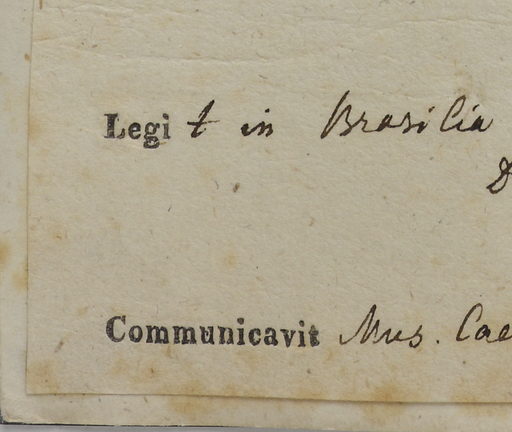 Legit in Brasilia
D
Communicavit Mus. Cae